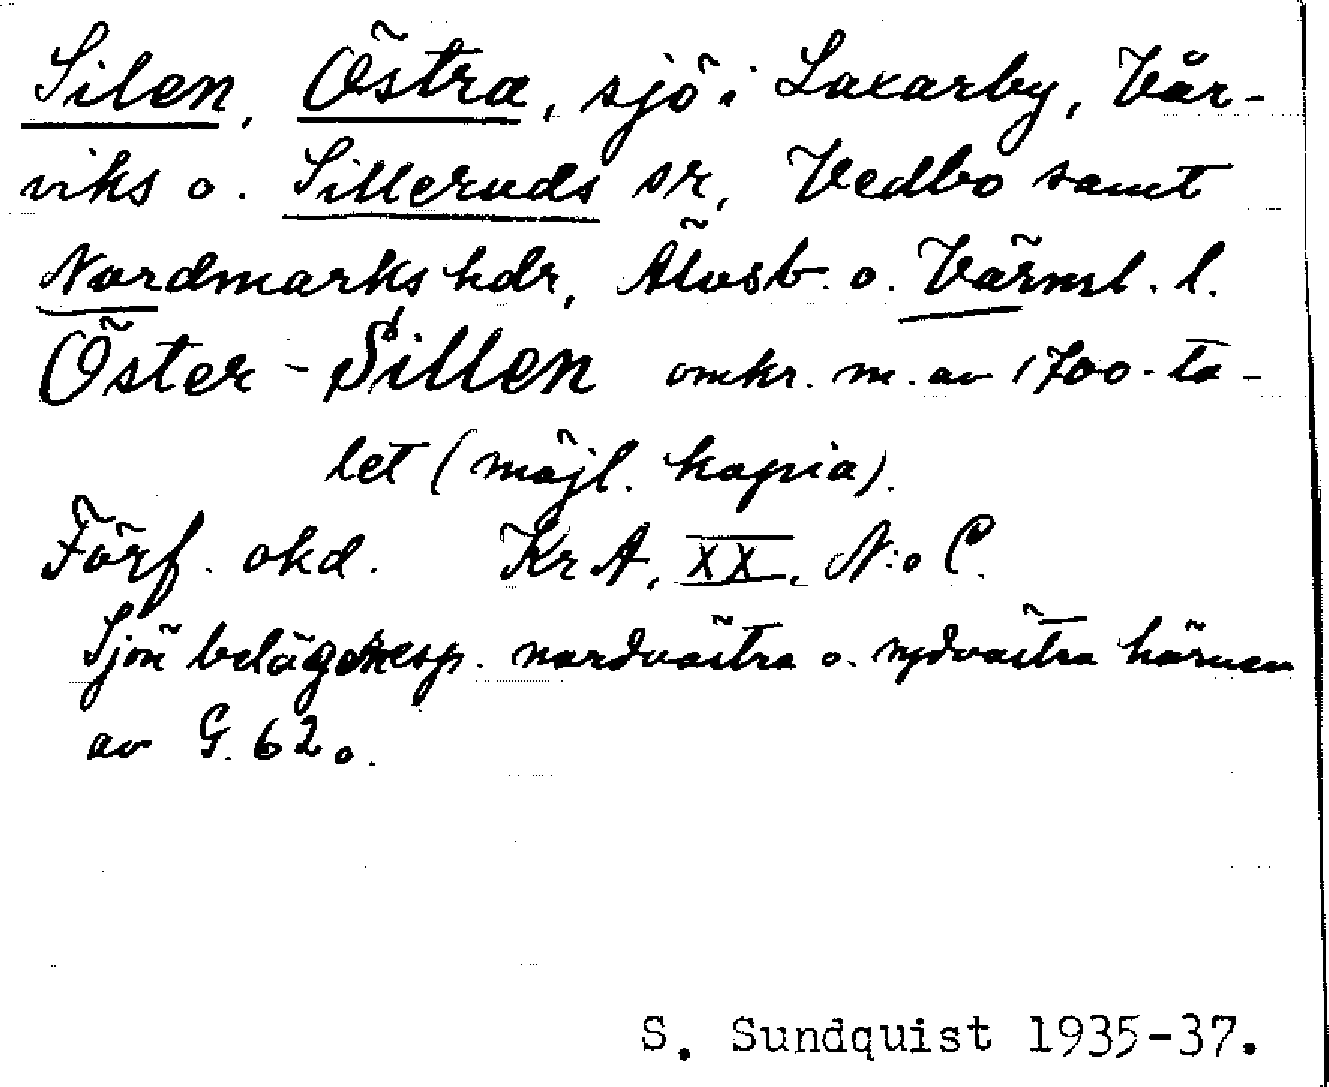 Silen, Östra, sjö i Laxarby, Vår-
viks o. Silleruds sr, Vedbo samt
Nordmarks hdr, Älvsb. o. Värml. l.
Öster-Sillen omkr. m. av 1700-ta-
let (möjl. kopia).
Förf. okd. KrA, XX, N:o C.
Sjön belägen resp. nordvästra o. sydvästra hörnen
av G. 62.
S. Sundquist 1935-37.